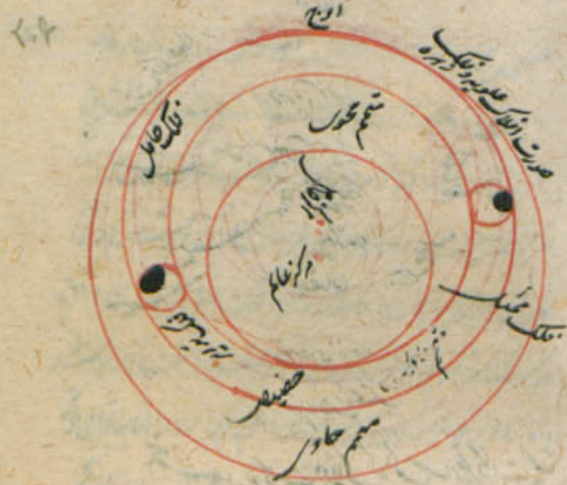 اوج
صورت افلاک علویه و فلک زهره
فلک حامل
متمم محوی
مرکز حامل
مرکز عالم
فلک ممثل
فلک تدویر
حضیض
متمم حاوی